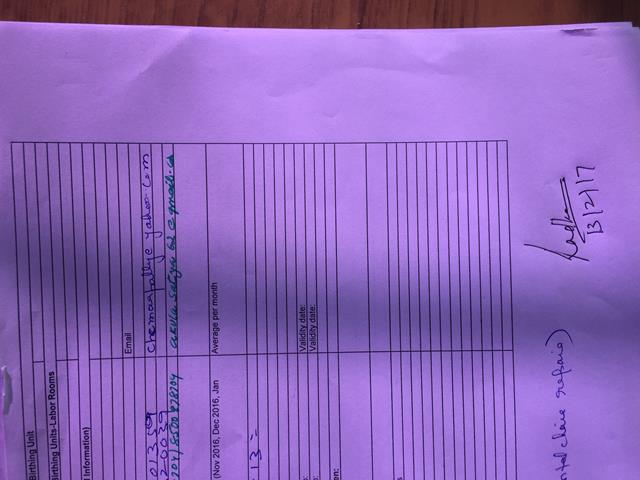 Birthing Unit
Birthing Units-Labor Rooms
Information)
Email
01359 chemanpally@yahoo.com
20039
204/8500878204 akula satya 62@gmail.co
(Nov 2016, Dec 2016, Jan Average per month
13 =
Validity date:
Validity date:
en:
chair repair)
Radha
13/2/17